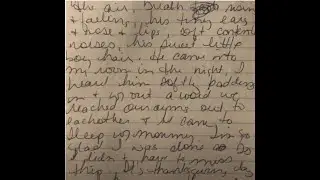 the air, breath
& feeling, his tiny ears
& nose & lips, soft content
noises, his sweet little
boy hair. He came into
my room in the night, I
heard him softly padding
in & w/out a word we
reached our arms out to
eachother & he came to
sleep w/ mommy. I'm so
glad I was alone so
I didn't have to miss
this. It's thanksgiving day